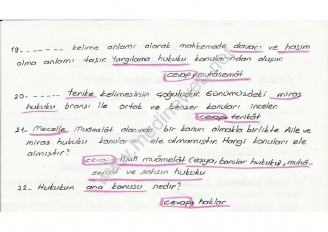 19-------- kelime anlamı olarak mahkemede davacı ve hasım
olma anlamı taşır. Yargılama hukuku konularından oluşur.
cevap muhâsemât
20------- terike kelimesinin çoğuludur. Günümüzdeki miras
hukuku branşı ile ortak ve benzer konuları inceler
cevap terikât
21- Mecelle muâmelât alanında bir kanun olmakla birlikte Aile ve
miras hukuku konularını ele almamıştır. Hangi konuları ele
almıştır?
cevap mali muâmelât (eşya, borçlar hukuku), muhâ-
semât ve şahsın hukuku
22. Hukukun ana konusu nedir?
cevap haklar